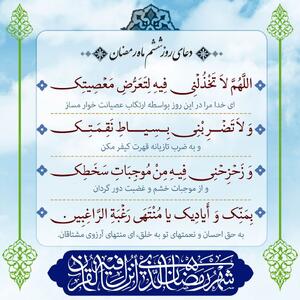 دعای روز ششم ماه رمضان
اللَّهُمَّ لاَ تَخْذُلْنِي فِيهِ لِتَعَرُّضِ مَعْصِيَتِكَ
ای خدا مرا در این روز بواسطه ارتکاب عصیانت خوار مساز
وَ لاَ تَضْرِبْنِي بِسِيَاطِ نَقِمَتِكَ
و به ضرب تازیانه قهرت کیفر مکن
وَ زَحْزِحْنِي فِيهِ مِنْ مُوجِبَاتِ سَخَطِكَ
و از موجبات خشم و غضبت دور گردان
بِمَنِّكَ وَ أَيَادِيكَ يَا مُنْتَهَى رَغْبَةِ الرَّاغِبِينَ
به حق احسان و نعمتهای تو به خلق، ای منتهای آرزوی مشتاقان.
شهر رمضان الذی انزل فیه القرآن